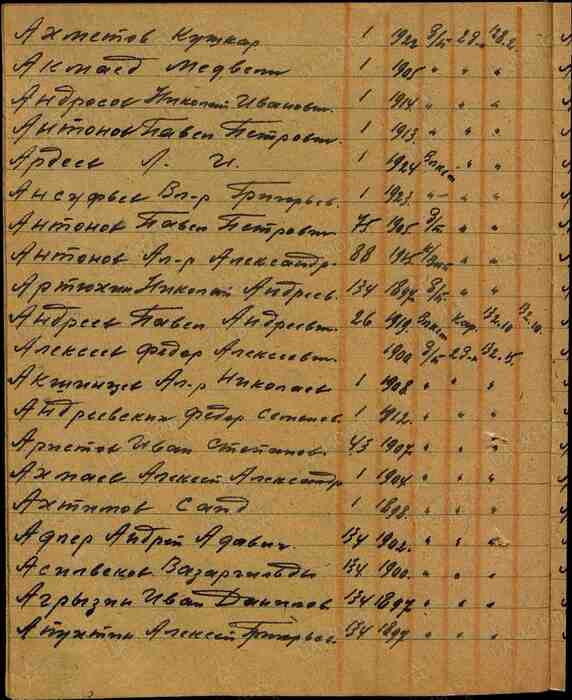 Ахметов Кушкар 1 1922 б/п 2 г.
Акмаед Медвели 1 1905 " " "
Андросов Николай Иванович 1 1914 " " "
Антонов Павел Петрович. 1 1913 " " "
Ардеев Л. И. 1 1924 " "
Ансуфьев Вл-р Григорьев. 1 1923 " " "
Антонов Павел Петрович 75 1905 б/п " "
Антонов Ал-р Александр. 88 1915 " "
Артюхин Николай Андреев. 134 1897 б/п " "
Андреев Павел Андреевич. 26 1919
Алексеев Федор Алексеевич. 1900 б/п 2 г.
Акшинцев Ал-р Николаев 1 1908 " " "
Андреевских Федор Семенов. 1 1912. " " "
Аристов Иван Степанов. 43 1907 " " "
Ахмаев Алексей Александр 1 1904 " " "
Ахтямов Саид 1 1898. " " "
Адлер Андрей Адавич. 134 1902. " " "
Асильбеков Вазаргильды 134 1900. " " "
Агрызин Иван Данилов 134 1897. " " "
Апухтин Алексей Григорьев. 134 1899 " " "